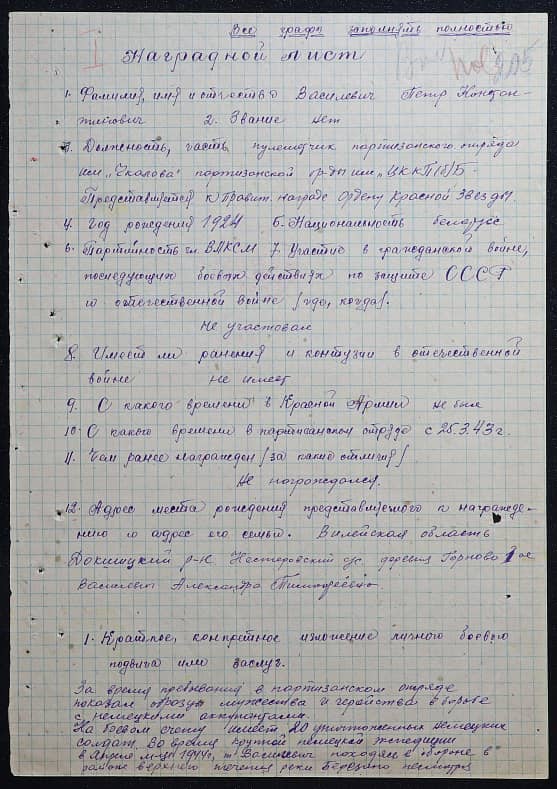 Все графы заполнять полностью
Наградной лист
1. Фамилия, имя и отчество Василевич Петр Констан-
тинович 2. Звание нет
3. Должность, часть пулеметчик партизанского отряда
им. "Чкалова" партизанской бр-ды им. "ЦККП(б)Б"
Представляется к Правит. награде Ордену Красной Звезды.
4. Год рождения 1924 5. Национальность беларус
6. Партийность чл. ВЛКСМ 7. Участие в гражданской войне,
последующих боевых действиях по защите СССР
и отечественной войне /где, когда/.
Не участвовал
8. Имеет ли ранения и контузии в отечественной
войне не имеет
9. С какого времени в Красной Армии не был
10. С какого времени в партизанском отряде с 25.3.43 г.
11. Чем ранее награжден /за какие отличия/
Не награждался.
12. Адрес места рождения представляемого к награжде-
нию и адрес его семьи. Вилейская область
Докшицкий р-н Нестеровский с/с. деревня
Александра Тимофеевна
1. Краткое, конкретное изложение личного боевого
подвига или заслуг.
За время пребывания в партизанском отряде
показал образцы мужества и геройства в борьбе
с немецкими аккупантами.
На боевом счету имеет 20 уничтоженных немецких
солдат. Во время крупной немецкой экспедиции
в Апреле м-це 1944г. т. Василевич находясь в обороне в
районе верхнего течения реки Березина